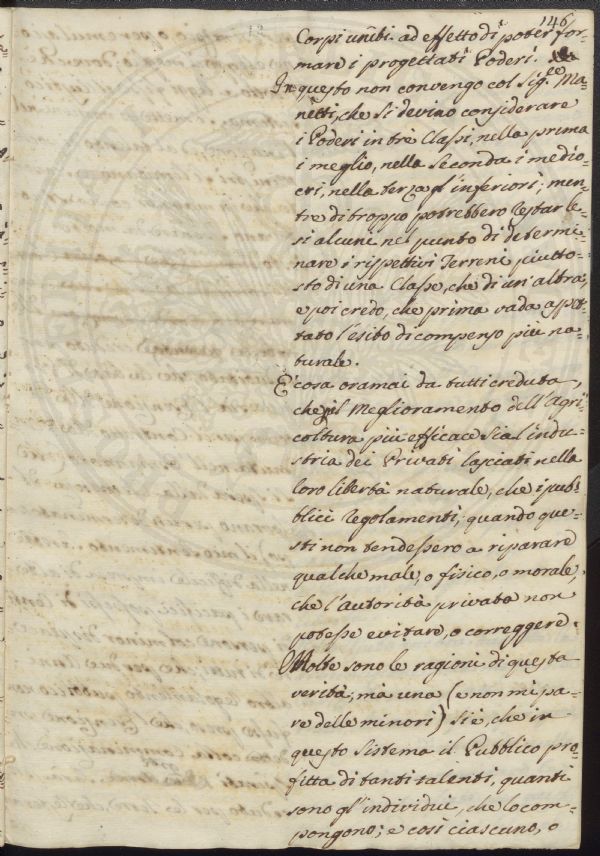 146
Corpi uniti ad effetto di poter for-
mare i progettati Poderi.
In questo non convengo col Sig.re Ma-
netti, che si devino considerare
i Poderi in trè Classi, nella prima
i meglio, nella Seconda i medio-
cri, nella terza gl'inferiori; men-
tre di troppo potrebbero restar le-
si alcuni nel punto di determi-
nare i rispettivi Terreni piutto-
sto di una Classe, che di un'altra,
e poi credo, che prima vada aspet-
tato l'esito di compenso più na-
turale.
E' cosa oramai da tutti creduta,
che il Meglioramento dell'agri-
coltura più efficace sia l'indu-
stria dei Privati lasciati nella
loro libertà naturale, che i pub-
blici regolamenti, quando que-
sti non tendessero a riparare
qualche male, o fisico, o morale,
che l'autorità privata non
potesse evitare, o correggere.
Molte sono le ragioni di questa
verità; mà una (e non mi pa-
re delle minori) si è, che in
questo Sistema il Pubblico pro-
fitta di tanti talenti, quanti
sono gl'individui, che lo com-
pongono; e così ciascuno, o